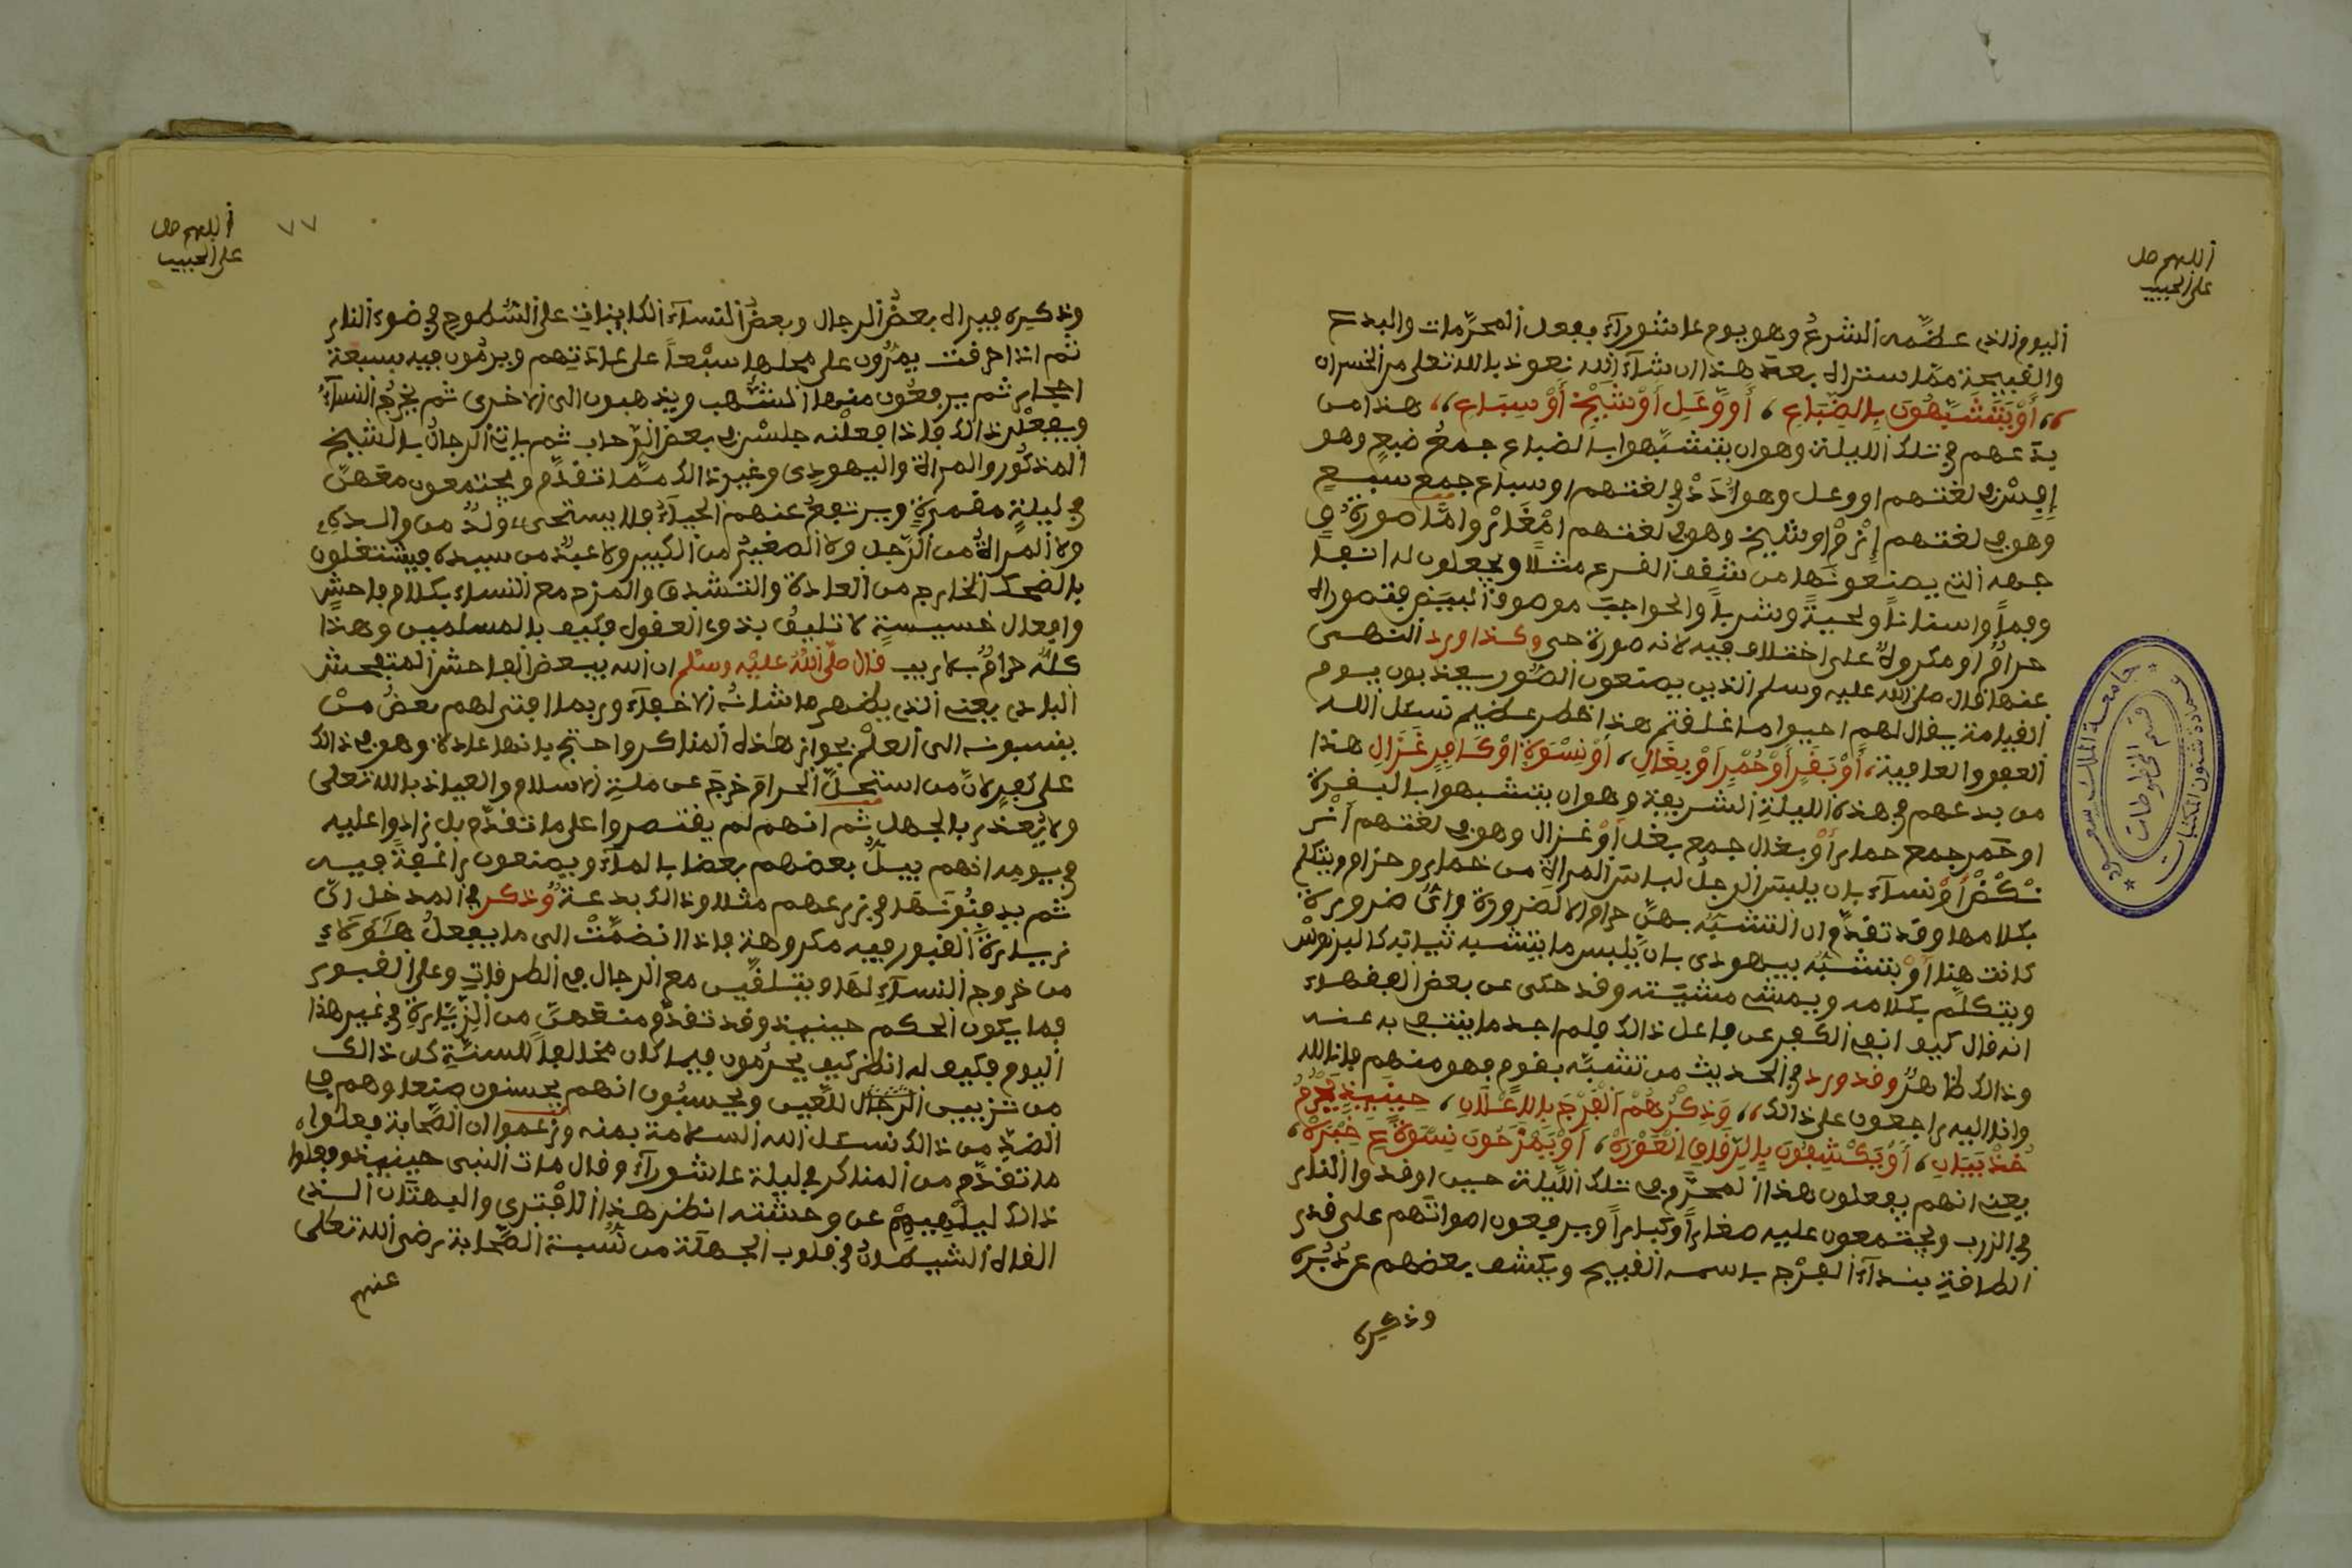 اللهم صل
على الحبيب
اليوم الذي عظمه الشرع وهو يوم عاشوراء بفعل المحرمات والبدع
والقبيحة مما ستراه بعد هذا ان شاء الله نعوذ بالله تعلى من الخسران
أو يتشبهون بالضباع، أو وعل أو شيخ أو سباع، هذا من
بدعهم في تلك الليلة وهو ان يتشبهوا بالضباع جمع ضبع وهو
إفيس في لغتهم او وعل وهو أدد في لغتهم او سباع جمع سبع
وهو في لغتهم إزم او شيخ وهو في لغتهم امغار واما صورة
جهه التي يصنعونها من شقف الفرع مثلا ويجعلون له انفا
وفما واسنانا ولحية وشربا والحواجب موصوفة البيض فتصوراه
حرام او مكروه على اختلاف فيه لانه صورة حي وكذا ورد النهي
عنها قال صلى الله عليه وسلم الذين يصنعون الصور يعذبون يوم
القيامة يقال لهم احيوا ما خلقتم هذا خطر عظيم نسئل الله
العفو والعافية، أو بقر أو حمر أو بغال، أو نسوة او كافر غزال هذا
من بدعهم في هذه الليلة الشريفة وهو ان يتشبهوا بالبقرة
او حمر جمع حمار أو بغال جمع بغل أو غزال وهو في لغتهم
أو نساء بان يلبس الرجل لباس المرأة من خمار وحزام ويتكلم
بكلامها وقد تقدم ان التشبه بهن حرام الا لضرورة واي ضرورة
كانت هنا أو يتشبه بيهودي بان يلبس ما يشبه ثيابه كالبرنوس
ويتكلم بكلامه ويمشي مشيته وقد حكى عن بعض الفقهاء
انه قال كيف انفي الكفر عن فاعل ذالك ولم اجد ما ينتفي به عنه
وذالك ظاهر وقد ورد في الحديث من تشبه بقوم فهو منهم فانا لله
وانا اليه راجعون على ذالك، وذكرهم الفرج بالاعلان، حينئذ يحرم
خذ بيان، أو يكشفون بالرفاق العورة، أو يمزحون نسوة
يعني انهم يفعلون هذا المحرم في تلك الليلة حين اوقدوا النار
في الزرب ويجتمعون عليه صغارا وكبارا ويرفعون اصواتهم على قدر
الطاقة بنداء الفرج باسمه القبيح ويكشف بعضهم عن دبره
وذكره
جامعة الملك سعود
عمادة شئون المكتبات
قسم المخطوطات
اللهم صل
على الحبيب
٧٧
وذكره فيراه بعض الرجال وبعض النساء الكاينات على السطوح في ضوء النار
ثم اذا حرقت يمرون على محلها سبعا على عادتهم ويرمون فيه بسبعة
احجار ثم يرفعون منها الشهب ويذهبون الى الاخرى ثم يخرج النساء
ويفعلن ذالك فاذا فعلنه جلسن في بعض الرحاب ثم ياتي الرجال بالشيخ
المذكور والمرأة واليهودي وغير ذالك مما تقدم ويجتمعون معهن
في ليلة مقمرة ويرتفع عنهم الحياء فلا يستحي ولد من والده
ولا المرأة من الرجل ولا الصغير من الكبير ولا عبد من سيده فيشتغلون
بالضحك الخارج من العادة والتشدق والمزح مع النساء بكلام فاحش
وافعال خسيسة لا تليق بذوي العقول فكيف بالمسلمين وهذا
كله حرام بلا ريب قال صلى الله عليه وسلم ان الله يبغض الفاحش المتفحش
البذي يعني الذي يظهر ما شانه الاخفاء وربما افتى لهم بعض من
ينسبونه الى العلم بجواز هذه المناكر واحتج بانها عادة وهو في ذالك
على كفر لان من استحل الحرام خرج عن ملة الاسلام والعياذ بالله تعلى
ولا يعذر بالجهل ثم انهم لم يقتصروا على ما تقدم بل زادوا عليه
في يومه انهم يبل بعضهم بعضا بالماء ويصنعون فيه
ثم يدفنونها في زرعهم مثلا وذالك بدعة وذكر في المدخل ان
زيارة القبور فيه مكروهة فاذا انضمت الى ما يفعل هؤلاء
من خروج النساء لها ويتلقين مع الرجال في الطرقات وعلى القبور
فما يكون الحكم حينئذ وقد تقدم منعهن من الزيارة في غير هذا
اليوم فكيف له انظر كيف يحرمون فيما كان مخالفا للسنة كان ذالك
من تزيين الرجال للعين ويحسبون انهم يحسنون صنعا وهم في
الضد من ذالك نسئل الله السلامة بمنه وزعموا ان الصحابة فعلوا
ما تقدم من المناكر في ليلة عاشوراء وقال مات النبي حينئذ وفعلوا
ذالك ليلهيهم عن وحشته انظر هذا الافترى والبهتان الذي
القاه الشيطان في قلوب الجهلة من نسبة الصحابة رضي الله تعلى
عنهم